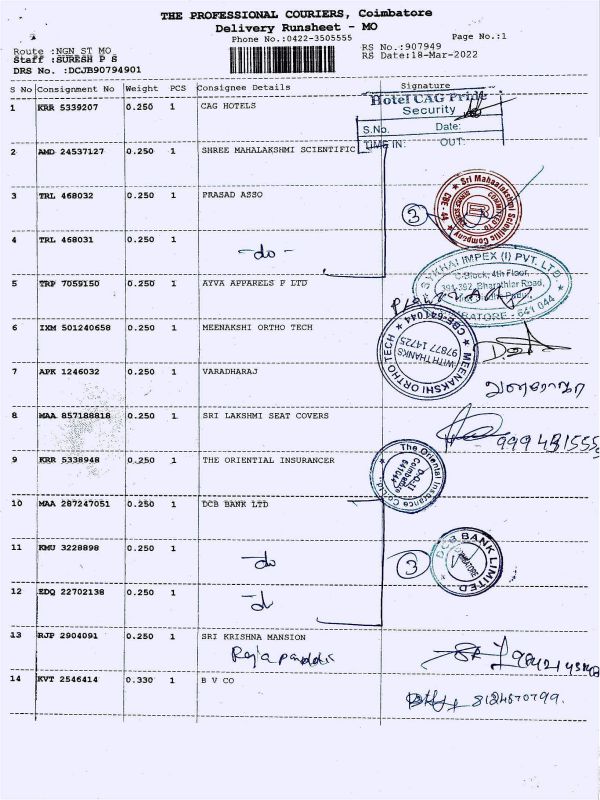 THE PROFESSIONAL COURIERS, Coimbatore
Delivery Runsheet - MO
Phone No.:0422-3505555
Page No.:1
Route :NGN ST MO
RS No.:907949
Staff :SURESH P S
RS Date:18-Mar-2022
DRS No. :DCJB90794901
S No Consignment No Weight PCS Consignee Details Signature
1 KRR 5339207 0.250 1 CAG HOTELS
Hotel CAG Pride
Security
S.No. Date:
TIME IN: OUT:
2 AMD 24537127 0.250 1 SHREE MAHALAKSHMI SCIENTIFIC
3 TRL 468032 0.250 1 PRASAD ASSO
3
Sri Mahaalakshmi Scientific Company
CBE - 44
4 TRL 468031 0.250 1 -do-
5 TRP 7059150 0.250 1 AYVA APPARELS P LTD
SYKHAI IMPEX (I) PVT. LTD.
C-Block, 4th Floor,
391-392, Bharathiar Road,
COIMBATORE - 641 044
6 IXM 501240658 0.250 1 MEENAKSHI ORTHO TECH
MEENAKSHI ORTHO TECH
CBE-641044
WITH THANKS
97877 14725
7 APK 1246032 0.250 1 VARADHARAJ
8 MAA 857188818 0.250 1 SRI LAKSHMI SEAT COVERS
9 KRR 5338948 0.250 1 THE ORIENTIAL INSURANCER
The Oriental Insurance Co Ltd.
D.O.-II
Coimbatore
641044
10 MAA 287247051 0.250 1 DCB BANK LTD
11 KMU 3228898 0.250 1 do
3
DCB BANK LIMITED
COIMBATORE
12 EDQ 22702138 0.250 1
13 RJP 2904091 0.250 1 SRI KRISHNA MANSION
14 KVT 2546414 0.330 1 B V CO